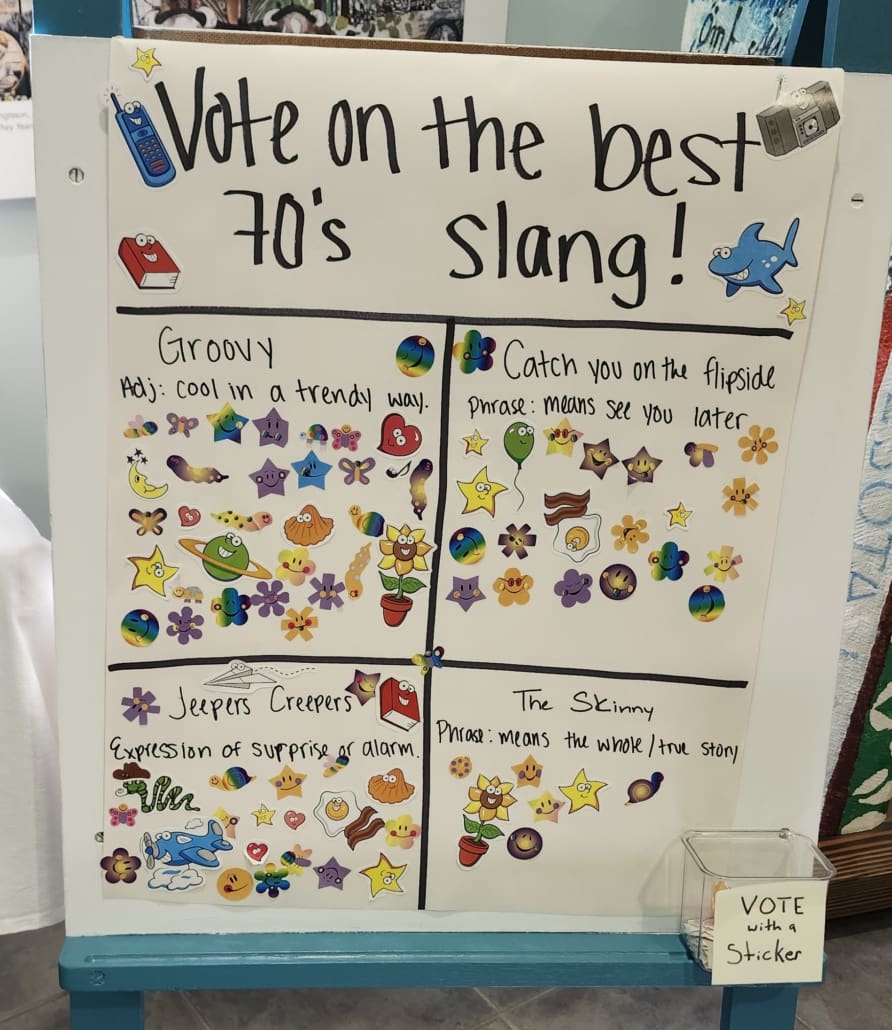 Vote on the best
70's slang!
Groovy
Adj: cool in a trendy way.
Catch you on the flipside
Phrase: means see you later
Jeepers Creepers
Expression of surprise or alarm.
The Skinny
Phrase: means the whole/true story
VOTE
with a
Sticker